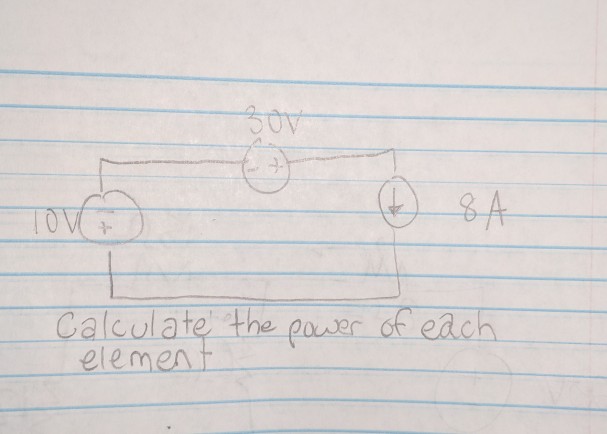 30V
- +
10V
-
+
8A
Calculate the power of each
element